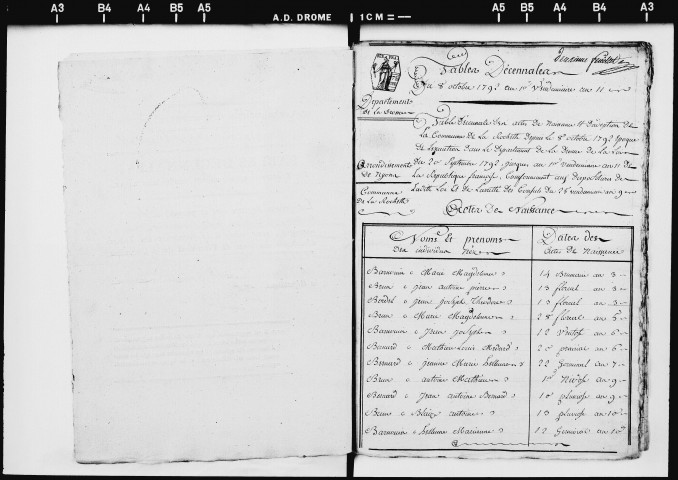 A3 B4 A4 B5 A5
A.D. DROME 1CM
A5 B5 A4 B4 A3
Tables Décennales
Du 8 octobre 1792 au 1er Vendemiaire an 11
Departement
de la Drome
Table Décennale des actes de Naissance et
La Commune de La Rochette depuis le 8 octobre 1792
de Separation Dans le Departement de la Drome de la Loi
Du 20 Septembre 1792, jusques au 1er vendemiaire an 11 de
La Republique française, Conformement aux dispositions de
Ladite Loi Et de L'arrêté des Consuls du 25 vendemiaire an 9
arrondissement
de Nyons
Commune
de La Rochette
Actes de Naissance
Noms et prenoms
Des individus Nés
Dates des
actes de Naissance
Barnouin Marie Magdeleine 14 Brumaire an 3
Brun jean antoine pierre 13 floreal an 3
Bordel jean joseph Theodore 13 floreal an 3
Brun Marie Magdeleine 28 floreal an 5
Barnouin Jean joseph 12 Ventose an 6
Bernard Mathieu Louis Medard 20 prairial an 6
Bernard jeanne Marie 22 Germinal an 7
Brun antoine Mathieu 1er Nivose an 9
Bernard Jean antoine Bernard 10 pluviose an 9
Brun Blaize antoine 13 pluviose an 10
Barnouin Marianne 12 Germinal an 10